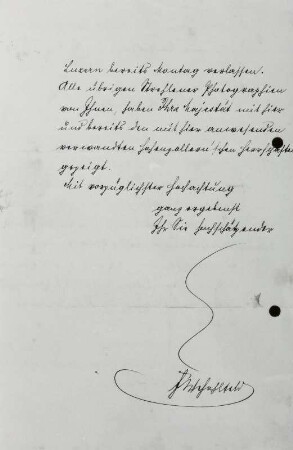 Luzern bereits Montag verlassen.
Alle übrigen Strehlener Photographien
von Ihnen, haben Ihre Majestät mit hier
und bereits den mit hier anwesenden
verwandten Hohenzollern'schen Herrschaften
gezeigt.
Mit vorzüglichster Hochachtung
ganz ergebenst
Ihr Sie hochschätzender